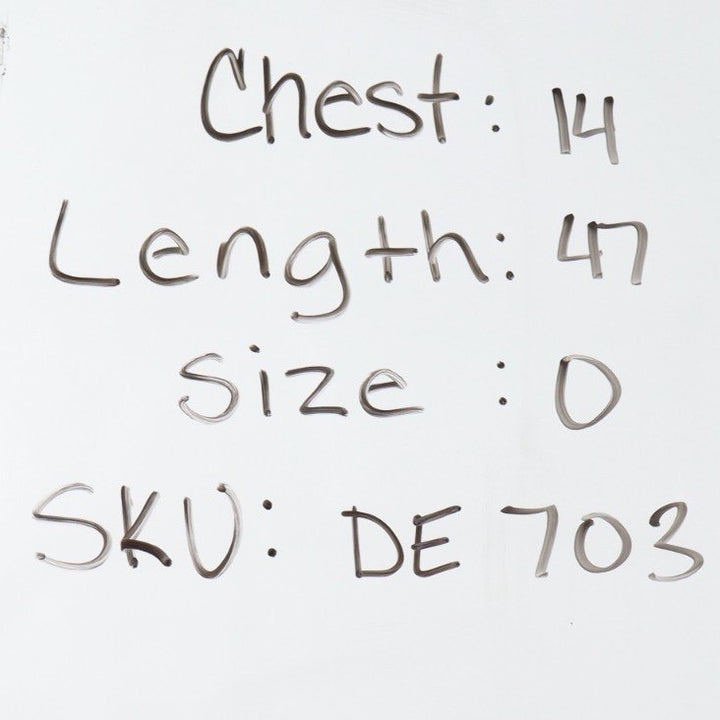 Chest: 14
Length: 47
Size : 0
SKU: DE 703